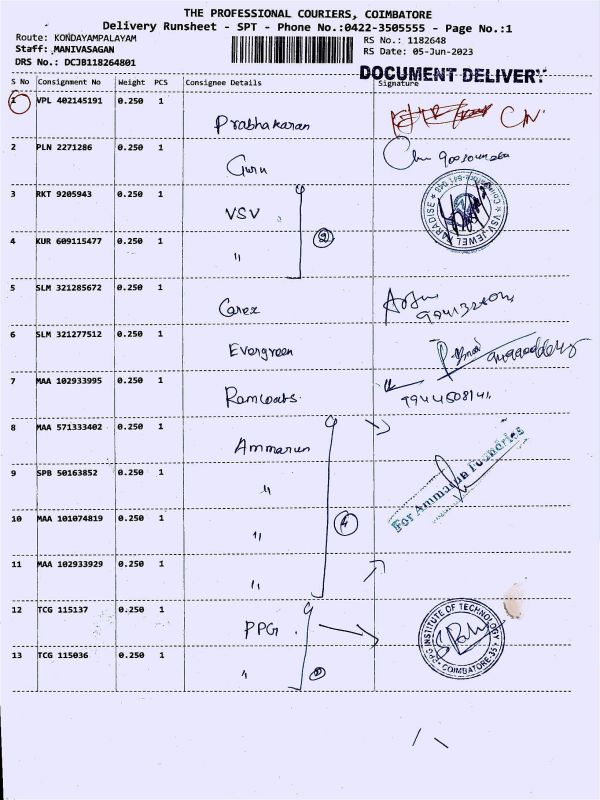 THE PROFESSIONAL COURIERS, COIMBATORE
Delivery Runsheet - SPT - Phone No.:0422-3505555 - Page No.:1
Route: KONDAYAMPALAYAM
RS No.: 1182648
Staff: MANIVASAGAN
RS Date: 05-Jun-2023
DRS No.: DCJB118264801
DOCUMENT DELIVERY
S No Consignment No Weight PCS Consignee Details Signature
1 VPL 402145191 0.250 1 Prabhakaran
2 PLN 2271286 0.250 1 Guru
3 RKT 9205943 0.250 1 VSV
VSV JEWEL PARADISE
4 KUR 609115477 0.250 1 " 2
5 SLM 321285672 0.250 1 Carex
6 SLM 321277512 0.250 1 Evergreen
7 MAA 102933995 0.250 1 Ramcoats. 9944508141
8 MAA 571333402 0.250 1 Ammarun
For Ammarun Foundries
9 SPB 50163852 0.250 1 "
10 MAA 101074819 0.250 1 " 4
11 MAA 102933929 0.250 1 "
12 TCG 115137 0.250 1 PPG.
PPG INSTITUTE OF TECHNOLOGY
COIMBATORE-35
13 TCG 115036 0.250 1 " 2